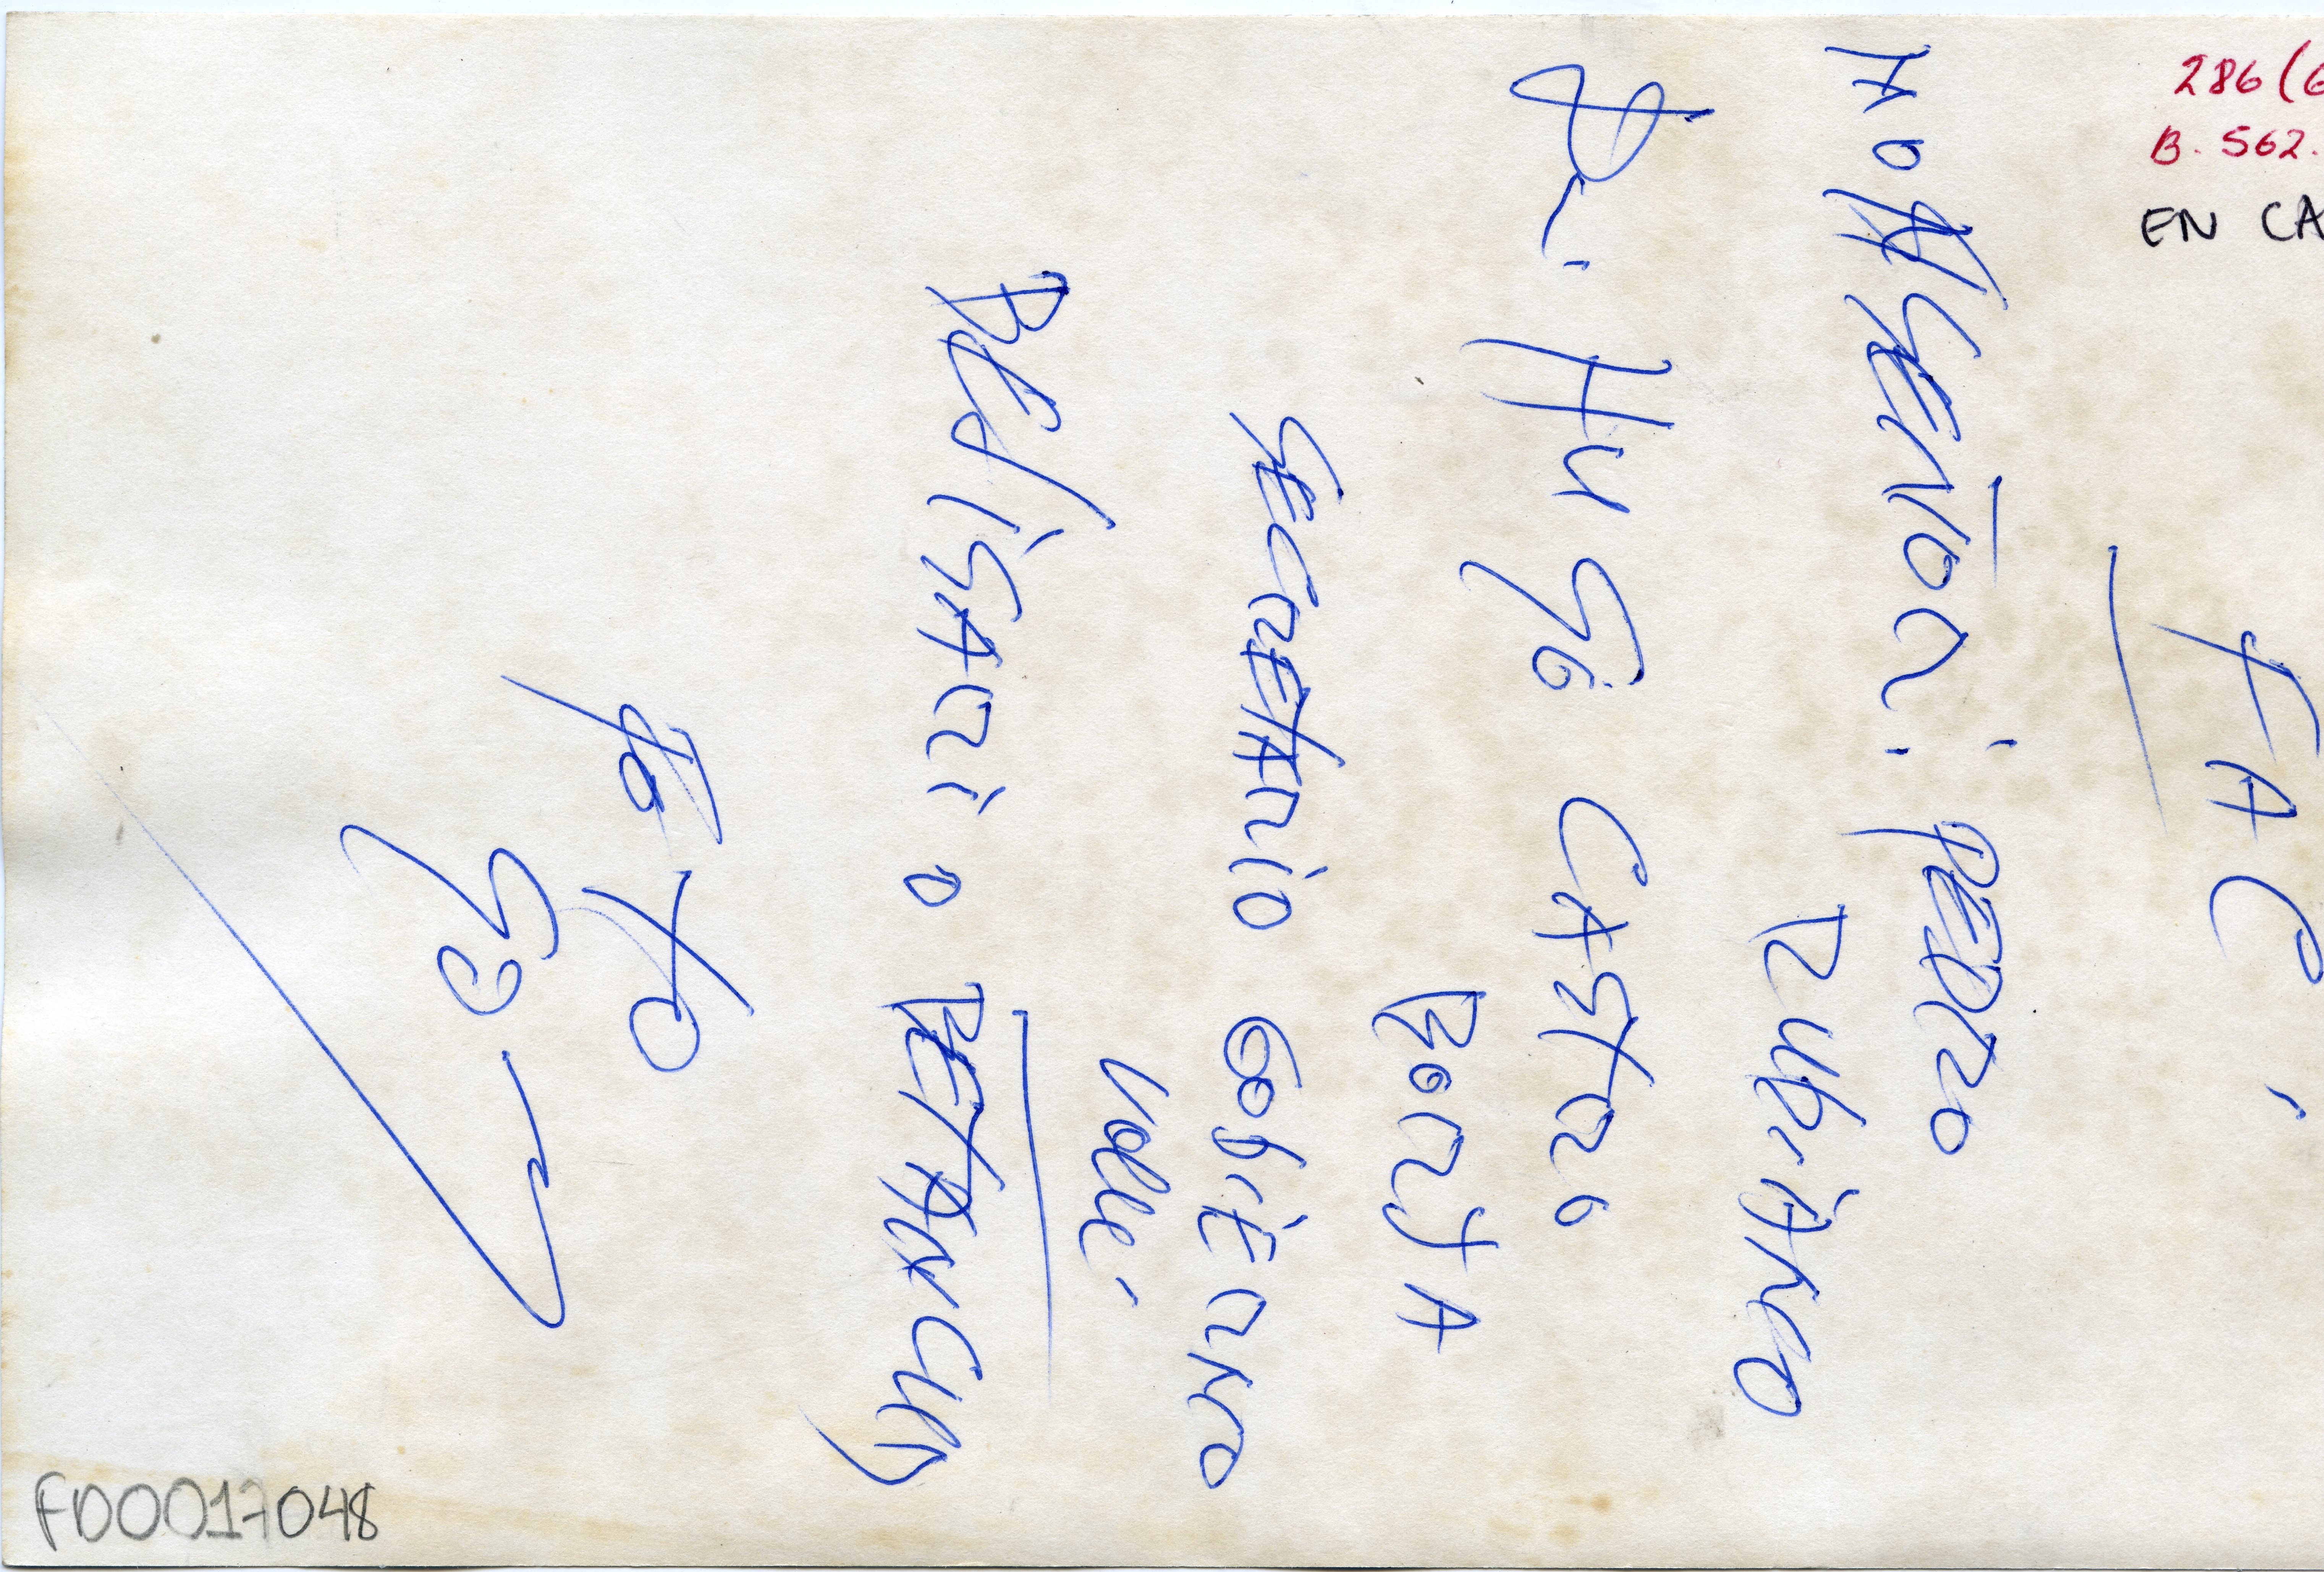 286(6
B. 562.
EN CA
FAC.
Monseñor: PEDRO
Rubiano
Dr. Hugo CASTRO
BORJA
SECRETARIO GobiERNO
Valle.
BELiSARiO BETANCUR
FoTo
FD0017048